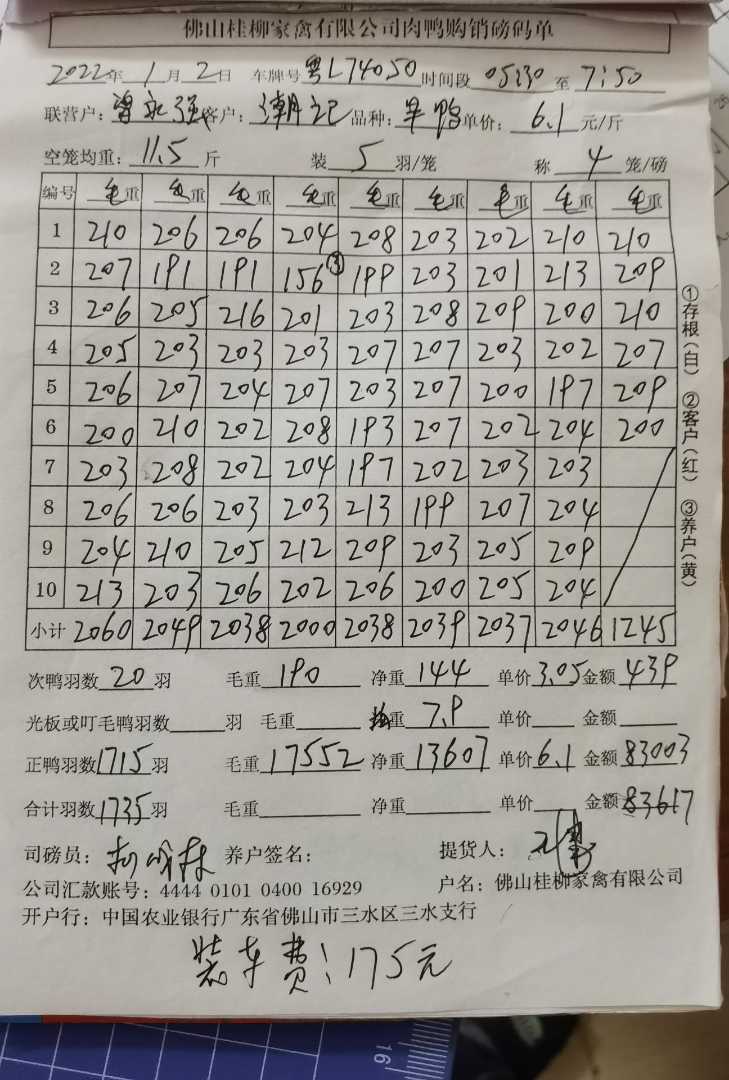 佛山桂柳家禽有限公司肉鸭购销磅码单
2022年 1月 2日 车牌号 粤L74050 时间段 05:30 至 7:50
联营户: 曾永强 客户: 潮记 品种: 单价: 6.1 元/斤
空笼均重: 11.5 斤 装 5 羽/笼 称 4 笼/磅
编号 毛重 毛重 毛重 毛重 毛重 毛重 毛重 毛重 毛重
1 210 206 206 204 208 203 202 210 210
2 207 191 191 156③ 199 203 201 213 209
3 206 205 216 201 203 208 209 200 210
4 205 203 203 203 207 207 203 202 207
5 206 207 204 207 203 207 200 197 209
6 200 210 202 208 193 207 202 204 200
7 203 208 202 204 197 202 203 203
8 206 206 203 203 213 199 207 204
9 204 210 205 212 209 203 205 209
10 213 203 206 202 206 200 205 204
小计 2060 2049 2038 2000 2038 2039 2037 2046 1245
①存根(白) ②客户(红) ③养户(黄)
次鸭羽数 20 羽 毛重 190 净重 144 单价 3.05 金额 439
光板或叮毛鸭羽数 羽 毛重 均重 7.9 单价 金额
正鸭羽数 1715 羽 毛重 17552 净重 13607 单价 6.1 金额 83003
合计羽数 1735 羽 毛重 净重 单价 金额 83617
司磅员: 养户签名: 提货人:
公司汇款账号: 4444 0101 0400 16929 户名: 佛山桂柳家禽有限公司
开户行: 中国农业银行广东省佛山市三水区三水支行
装车费: 175元
16